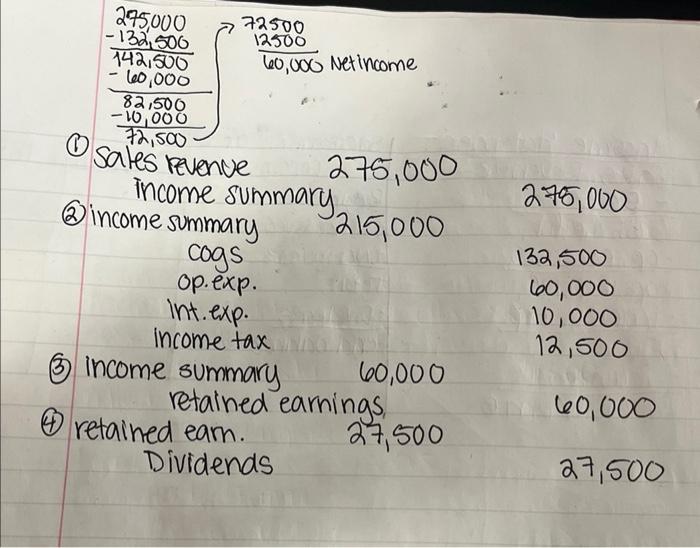 275,000
-132,500
142,500
- 60,000
82,500
-10,000
72,500
72500
12500
60,000 Net income
① Sales revenue 275,000
income summary 275,000
② income summary 215,000
cogs 132,500
op. exp. 60,000
int. exp. 10,000
income tax 12,500
③ income summary 60,000
retained earnings 60,000
④ retained earn. 27,500
Dividends 27,500